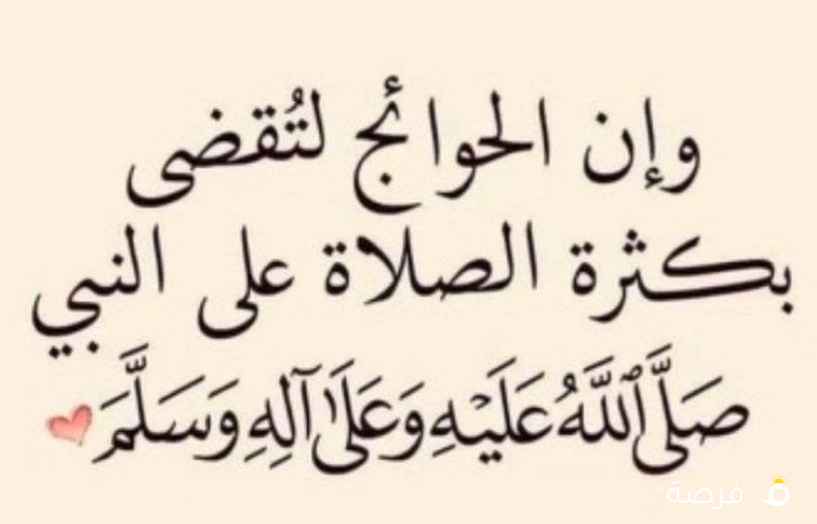 وإن الحوائج لتُقضى
بكثرة الصلاة على النبي
صَلَّى ٱللَّهُ عَلَيْهِ وَعَلَىٰ آلِهِ وَسَلَّمَ
فرصة